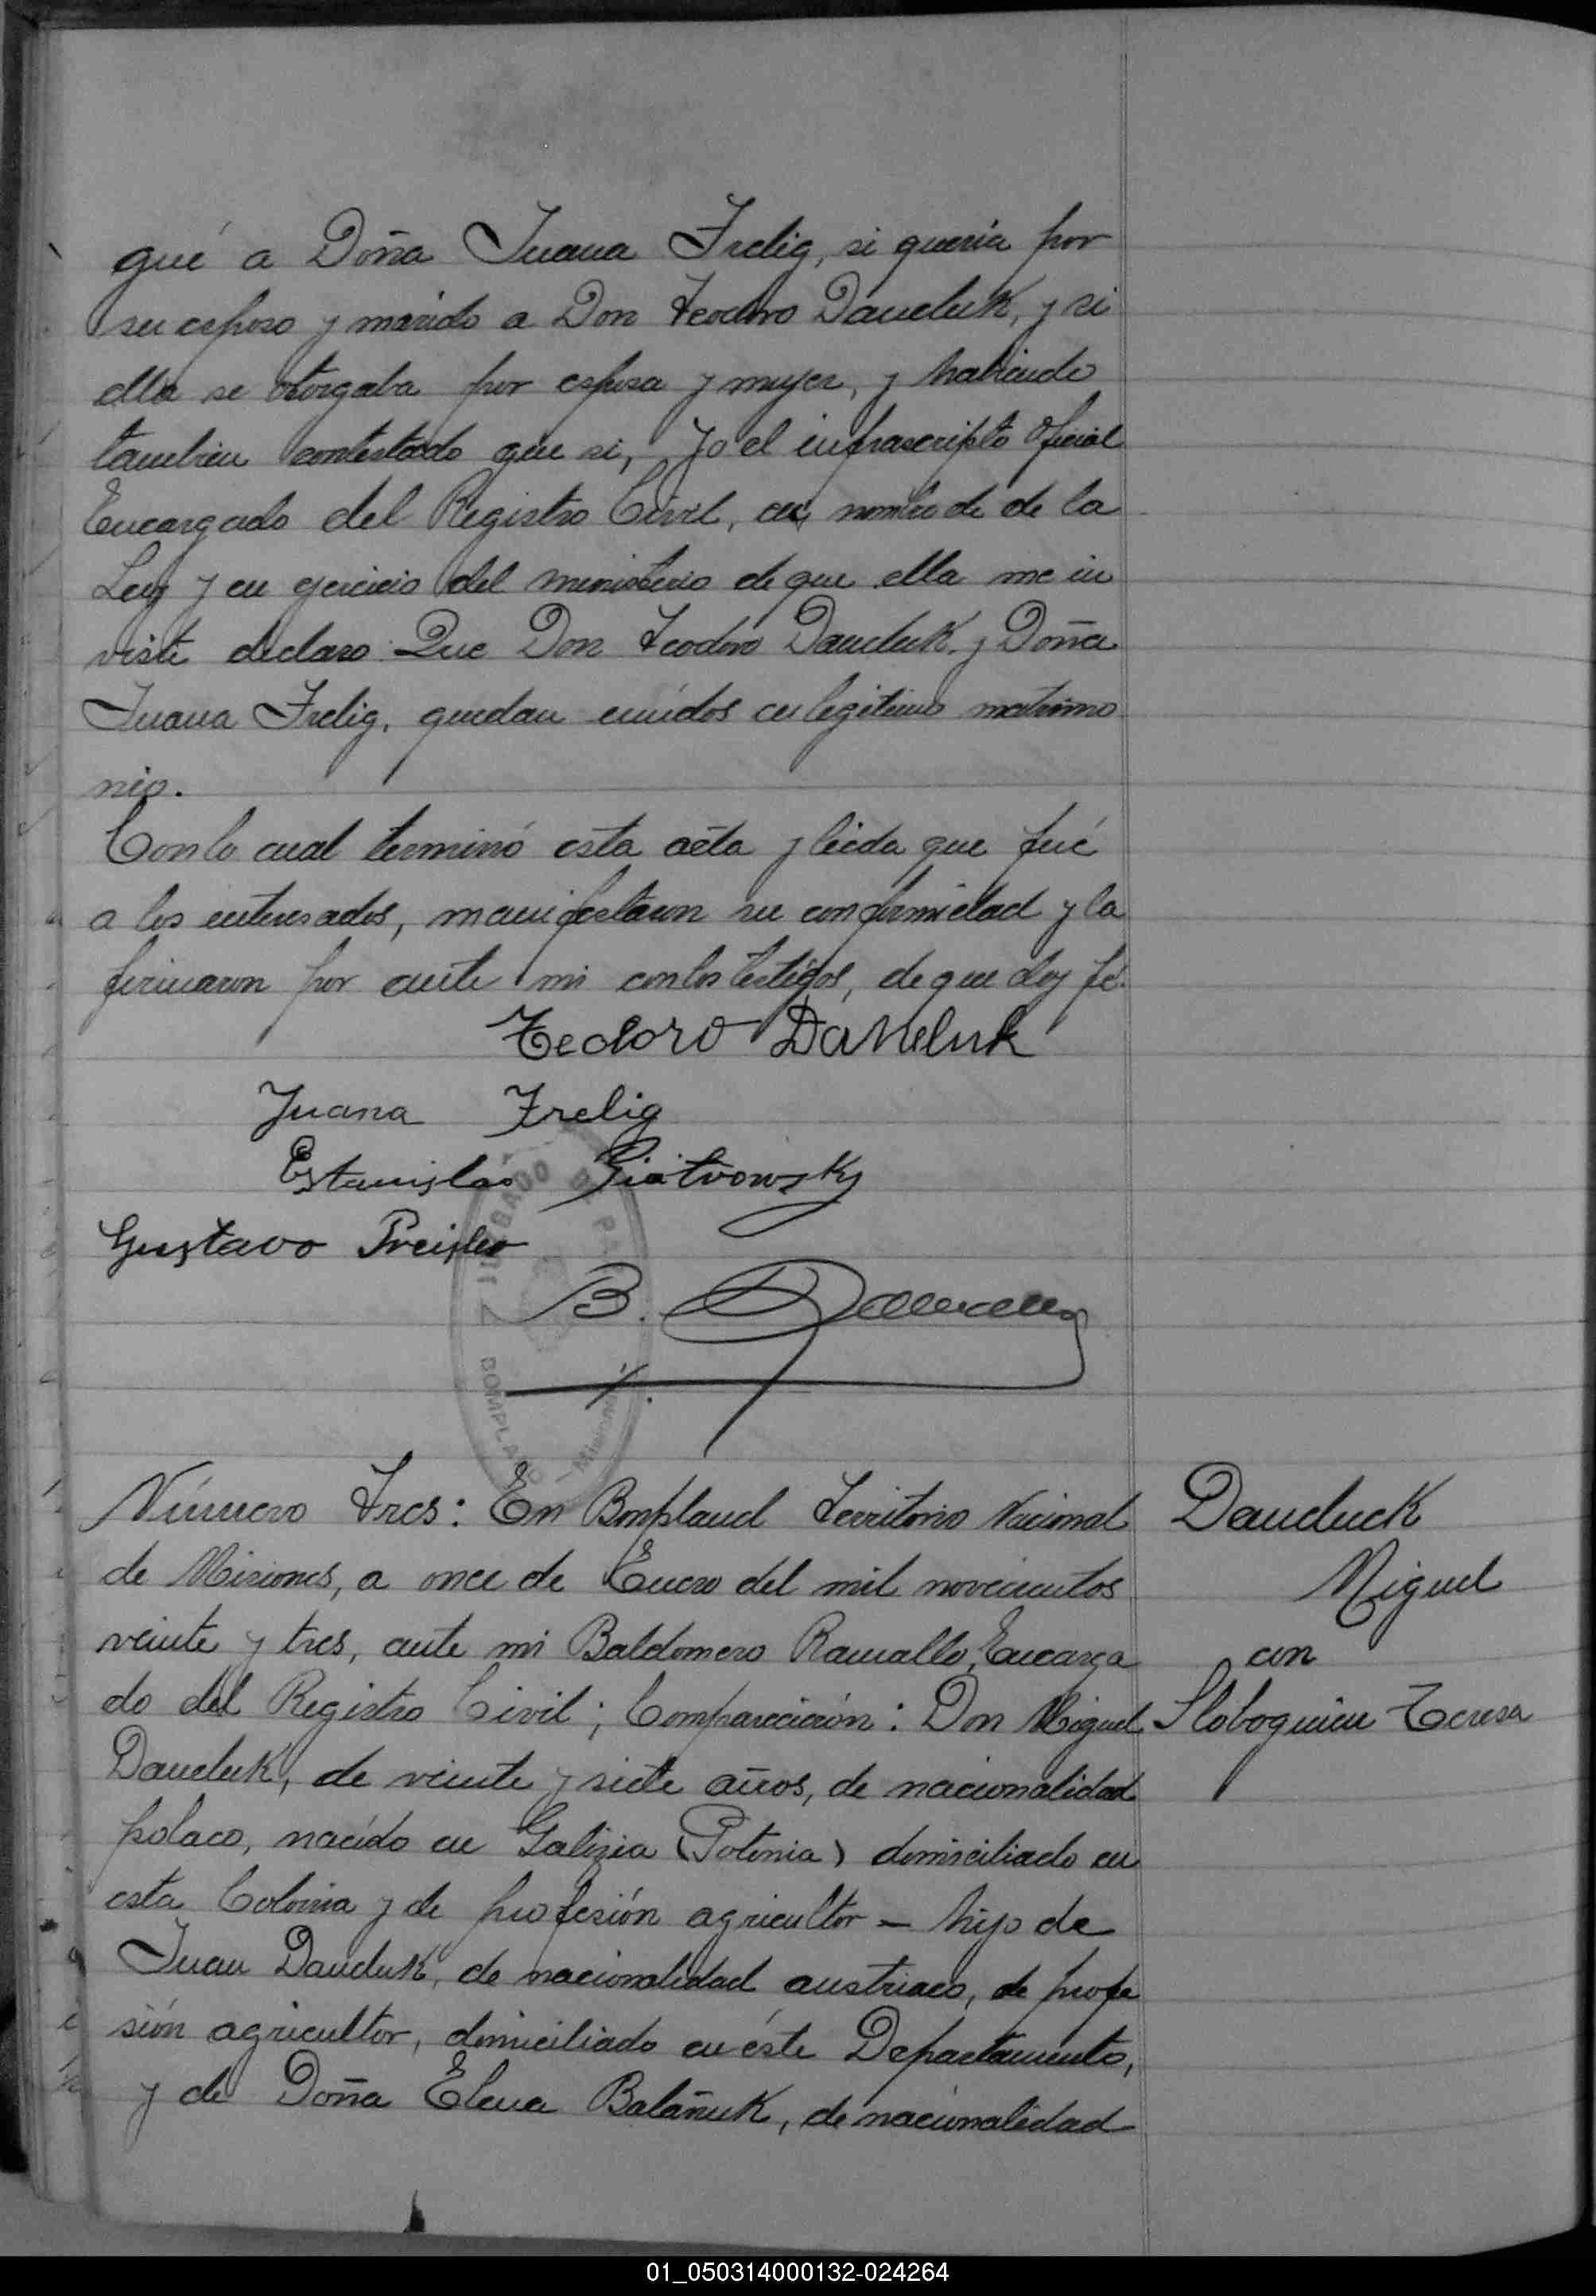 gué a Doña Juana Frelig, si quería por
su esposo y marido a Don Teodoro Daneluk, y si
ella se otorgaba por esposa y mujer, y habiendo
tambien contestado que si, Yo el infrascripto Oficial
Encargado del Registro Civil, en nombe de de la
Ley y en ejercicio del ministerio de que ella me in
viste declaro: Que Don Teodoro Daneluk, y Doña
Juana Frelig, quedan unídos en legitimo matrimo
nio.
Con lo cual terminó esta acta y leida que fué
a los interesados, manifestaron su conformidad y la
firmaron por ante mi con los testigos, de que doy fé.
Teodoro Daneluk
Juana Frelig
Estanislao Piatrowsky
Gustavo Preisler
B.
JUZGADO DE PAZ
BOMPLAND - Misiones
Número Tres: En Bonpland Territorio Nacional
de Misiones, a once de Enero del mil novecientos
veinte y tres, ante mi Baldomero Ramallo, Encarga
do del Registro Civil; Comparecieron: Don Miguel
Daneluk, de veinte y siete años, de nacionalidad
polaco, nacído en Galizia (Polonia) domiciliado en
esta Colonia y de profesión agricultor - hijo de
Juan Daneluk, de nacionalidad austriaco, de profe
sión agricultor, domiciliado en éste Departamento,
y de Doña Elena Balañuk, de nacionalidad
Daneluck
Miguel
con
Sloboguien Teresa
01_050314000132-024264